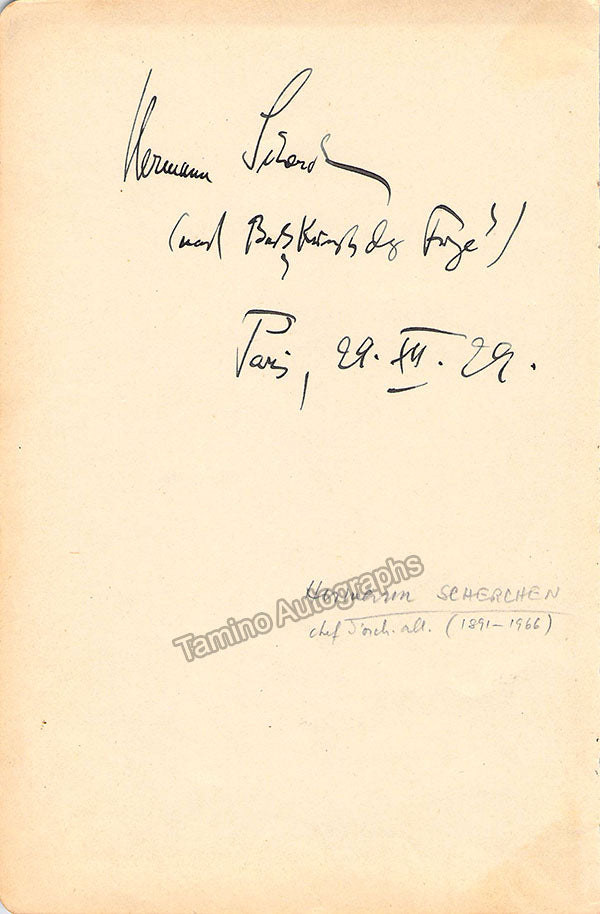 Hermann Scherchen
(nach Bachs "Kunst der Fuge")
Paris, 29. XII. 29.
Hermann SCHERCHEN
chef d'orch. all. (1891-1966)
Tamino Autographs